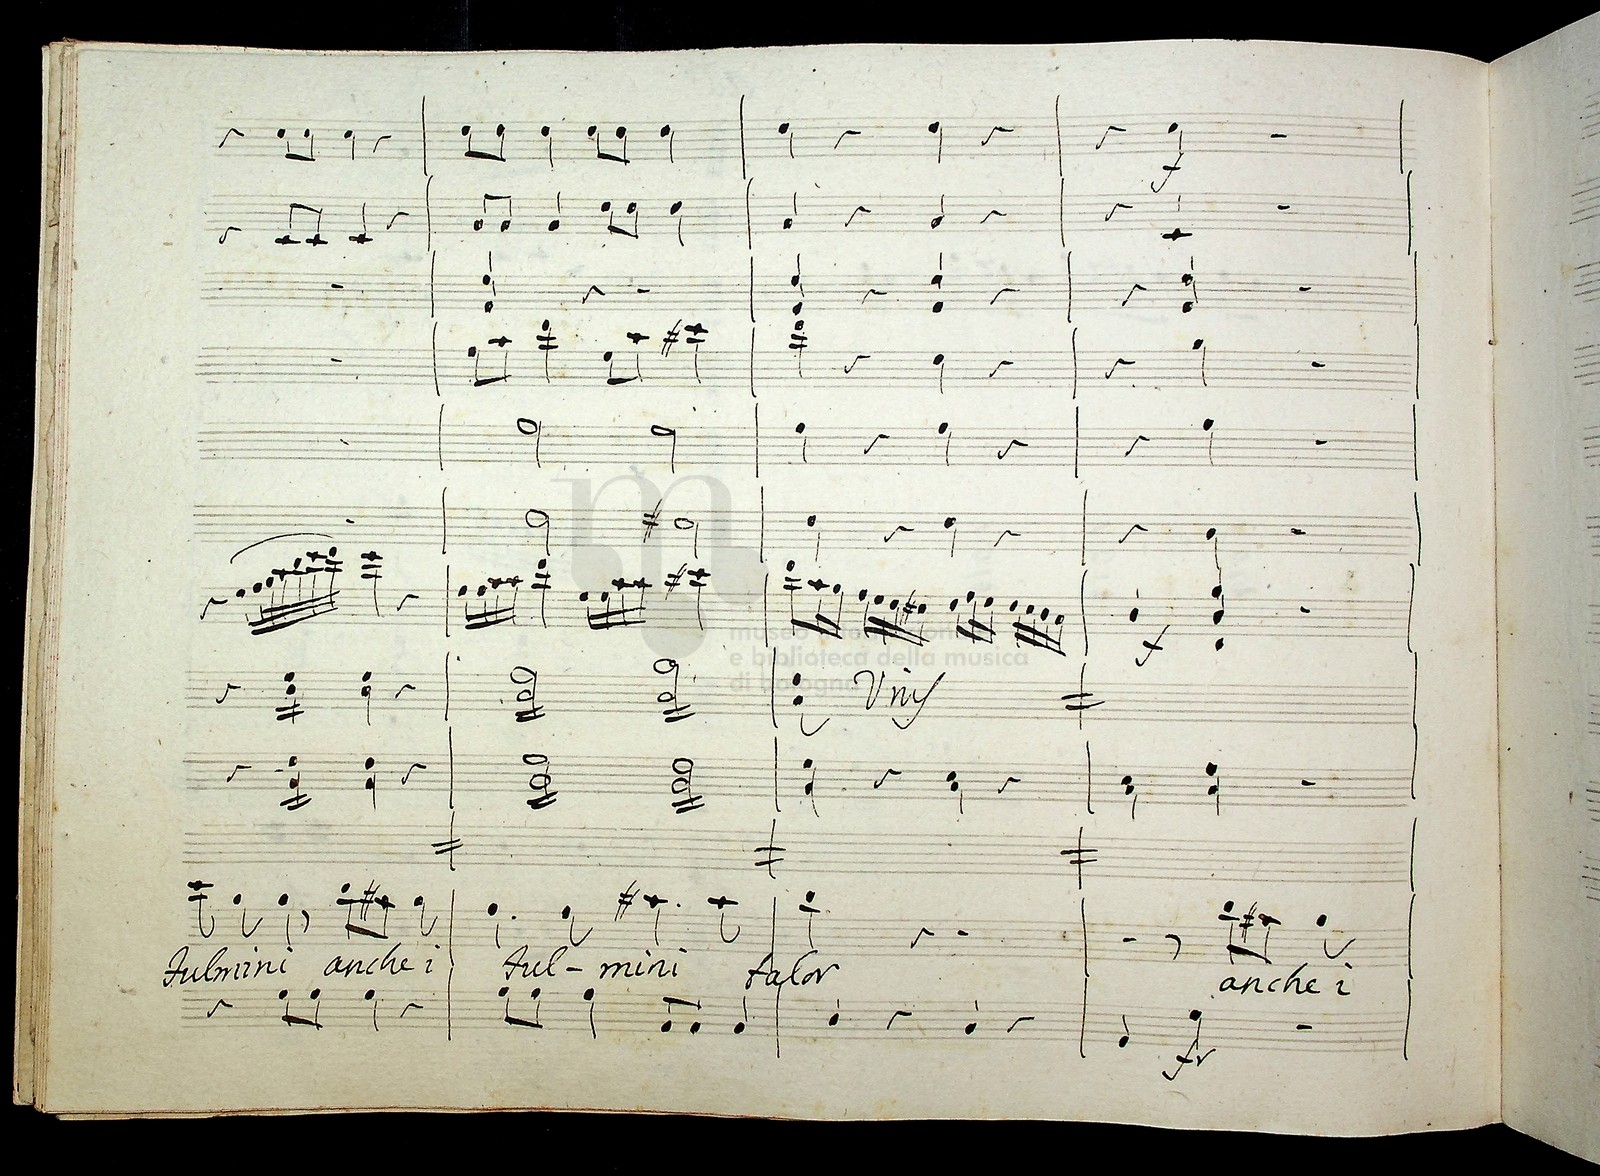 f
museo internazionale
e biblioteca della musica
di bologna
f
Unis
fulmini anche i ful - mini talor
anche i